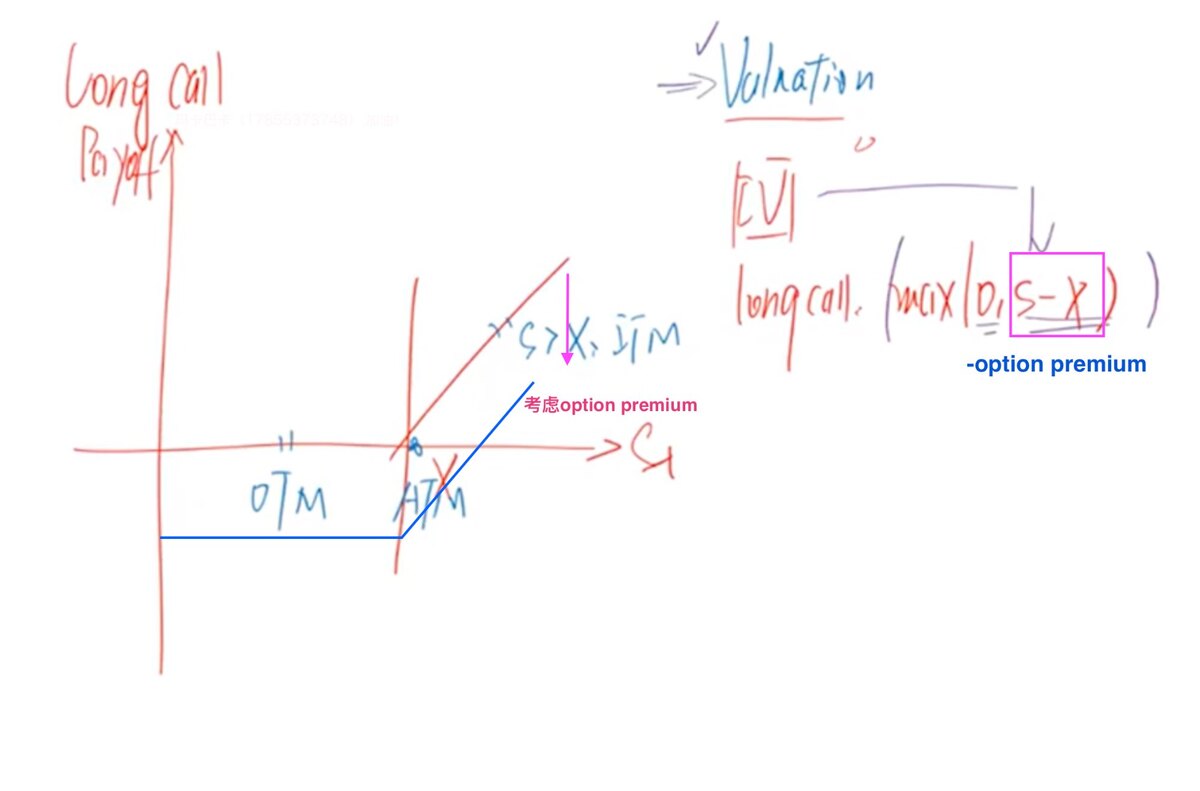 Long call
Payoff
S>X, ITM
考虑option premium
S
OTM
ATM
X
⇒ Valuation
IV
long call. (max(0, S-X))
-option premium